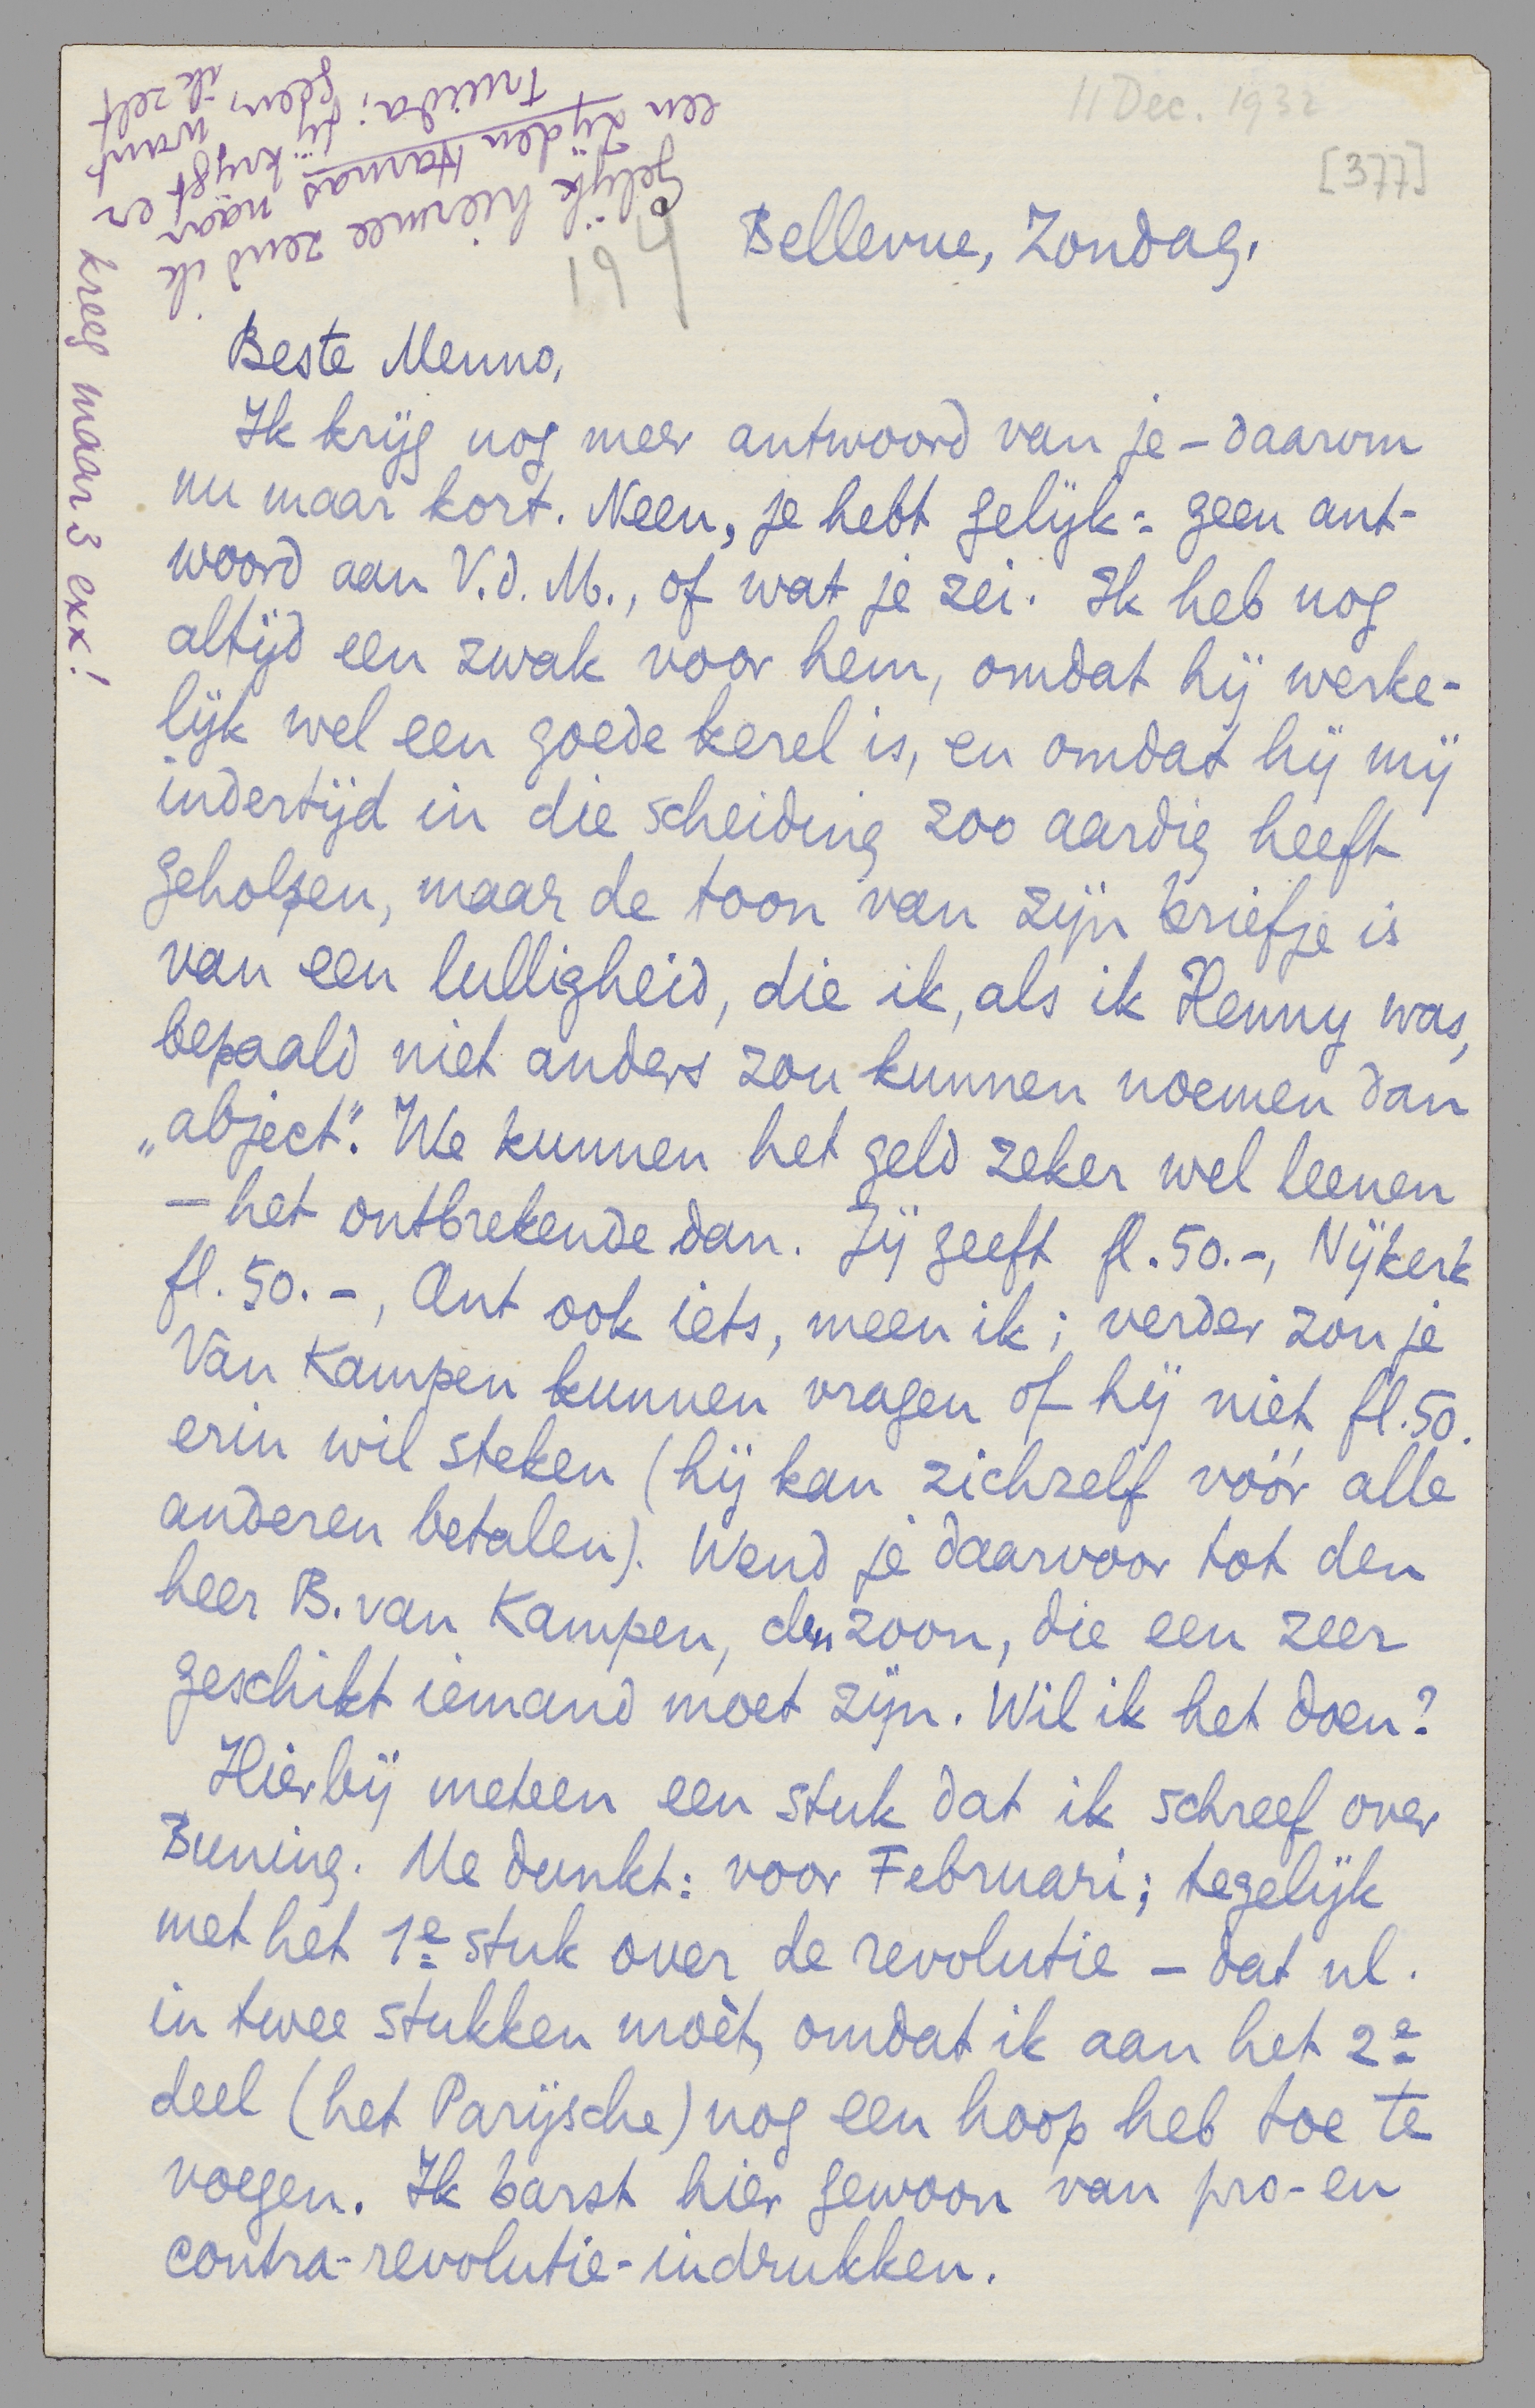 11 Dec. 1932
[377]
194
Bellevue, Zondag.
Beste Menno,
Ik krijg nog meer antwoord van je – daarom
nu maar kort. Neen, je hebt gelijk: geen ant-
woord aan V.d. M., of wat je zei. Ik heb nog
altijd een zwak voor hem, omdat hij werke-
lijk wel een goede kerel is, en omdat hij mij
indertijd in die scheiding zoo aardig heeft
geholpen, maar de toon van zijn briefje is
van een lulligheid, die ik, als ik Henny was,
bepaald niet anders zou kunnen noemen dan
„abject”. We kunnen het geld zeker wel leenen
– het ontbrekende dan. Jij geeft fl. 50.–, Nijkerk
fl. 50.–, Ant ook iets, meen ik; verder zou je
Van Kampen kunnen vragen of hij niet fl. 50.
erin wil steken (hij kan zichzelf vóór alle
anderen betalen). Wend je daarvoor tot den
heer B. van Kampen, den zoon, die een zeer
geschikt iemand moet zijn. Wil ik het doen?
Hierbij meteen een stuk dat ik schreef over
Buning. Me dunkt: voor Februari; tegelijk
met het 1e stuk over de revolutie – dat nl.
in twee stukken moèt, omdat ik aan het 2e
deel (het Parijsche) nog een hoop heb toe te
voegen. Ik barst hier gewoon van pro- en
contra-revolutie-indrukken.
Gelijk hiermee zend ik
een Zijden Harnas naar
Truida; jij krijgt er
geen, want
ik zelf
kreeg maar 3 exx!